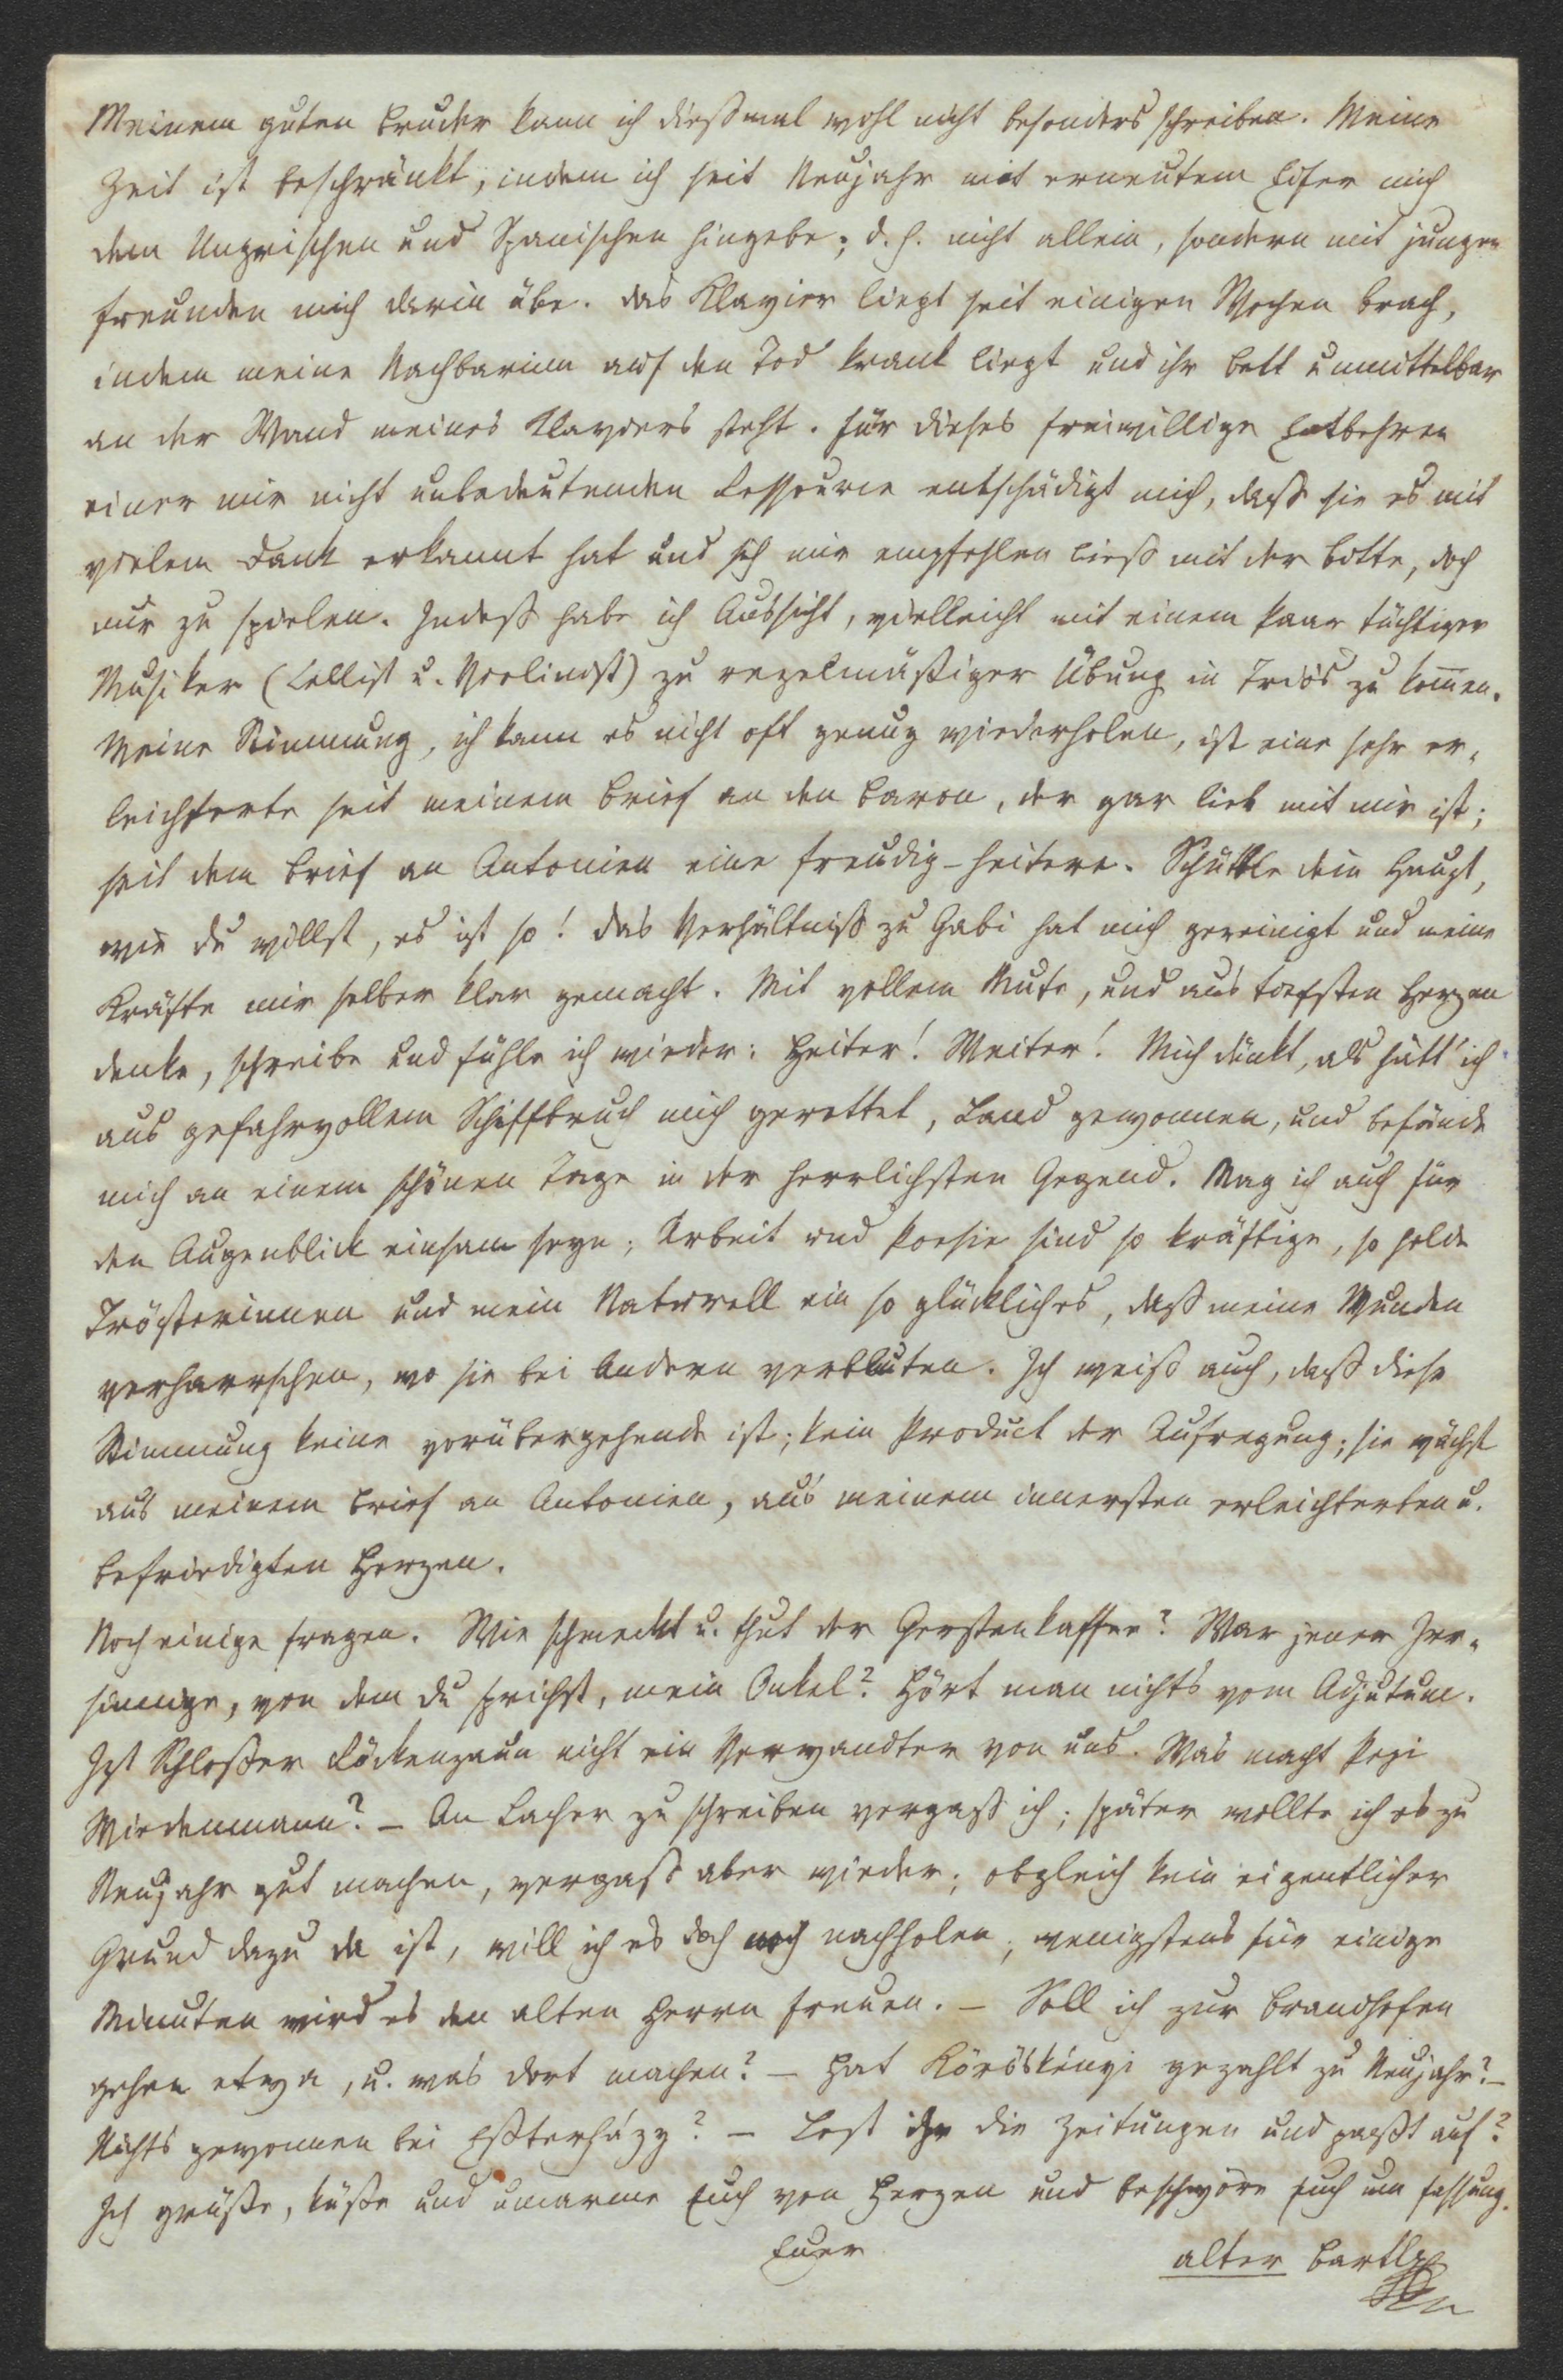 Meinem guten Bruder kann ich dießmal wohl nicht besonders schreiben. Meine
Zeit ist beschränkt, indem ich seit Neujahr mit erneutem Eifer mich
dem Ungrischen und Spanischen hingebe; d. h. nicht allein, sondern mit jungen
Freunden mich darin übe. Das Klavier liegt seit einigen Wochen brach,
indem meine Nachbarinn auf den Tod krank liegt und ihr Bett unmittelbar
an der Wand meines Klaviers steht. Für dieses freiwillige Entbehren
einer mir nicht unbedeutenden Ressource entschädigt mich, daß sie es mit
vielem Dank erkannt hat und sich mir empfehlen ließ mit der Bitte, doch
nur zu spielen. Indeß habe ich Aussicht, vielleicht mit einem Paar tüchtiger
Musiker (Cellist u. Violinist) zu regelmäßiger Übung in Trios zu kom̄en.
Meine Stimmung, ich kann es nicht oft genug wiederholen, ist eine sehr er-
leichterte seit meinem Brief an den Baron, der gar lieb mit mir ist;
seit dem Brief an Antonien eine freudig-heitere. Schüttle dein Haupt,
wie du willst, es ist so! Das Verhältniß zu Gabi hat mich gereinigt und meine
Kräfte mir selber klar gemacht. Mit vollem Mute, und aus tiefsten Herzen
denke, schreibe und fühle ich wieder: Heiter! Weiter! Mich dünkt, als hätt' ich
aus gefahrvollem Schiffbruch mich gerettet, Land gewonnen, und befände
mich an einem schönen Tage in der herrlichsten Gegend. Mag ich auch für
den Augenblick einsam seyn; Arbeit und Poesie sind so kräftige, so holde
Trösterinnen und mein Naturell ein so glückliches, daß meine Wunden
verharrschen, wo sie bei Andern verbluten. Ich weiß auch, daß diese
Stimmung keine vorübergehende ist; kein Product der Aufregung; sie wächst
aus meinem Brief an Antonien, aus meinem innersten erleichterten u.
befriedigten Herzen.
Noch einige Fragen. Wie schmeckt u. thut der Gerstenkaffee? War jener Irr-
sinnige, von dem du sprichst, mein Onkel? Hört man nichts vom Adjutum.
Ist Schloßer Röckenzaun nicht ein Verwandter von uns. Was macht Pepi
Wiedenmann? – An Lacher zu schreiben vergaß ich; später wollte ich es zu
Neujahr gut machen, vergaß aber wieder; obgleich kein eigentlicher
Grund dazu da ist, will ich es doch noch nachholen; wenigstens für einige
Minuten wird es den alten Herrn freuen. – Soll ich zur Brandhofen
gehen etwa, u. was dort machen? – Hat Köröskényi gezahlt zu Neujahr? –
Nichts gewonnen bei Eßterházy? – Lest ihr die Zeitungen und paßt auf?
Ich grüße, küße und umarme Euch von Herzen und beschwöre Euch um Fassung.
Euer
alter Bartly